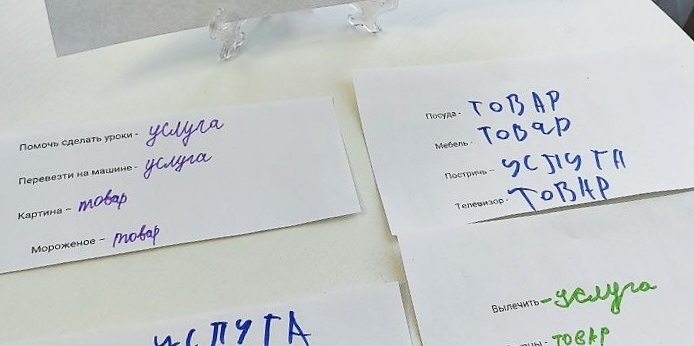 Помочь сделать уроки - услуга
Перевезти на машине - услуга
Картина – товар
Мороженое – товар
Посуда - ТОВАР
Мебель - ТОВАР
Постричь – УСЛУГА
Телевизор - ТОВАР
УСЛУГА
Вылечить - услуга
- ТОВАР